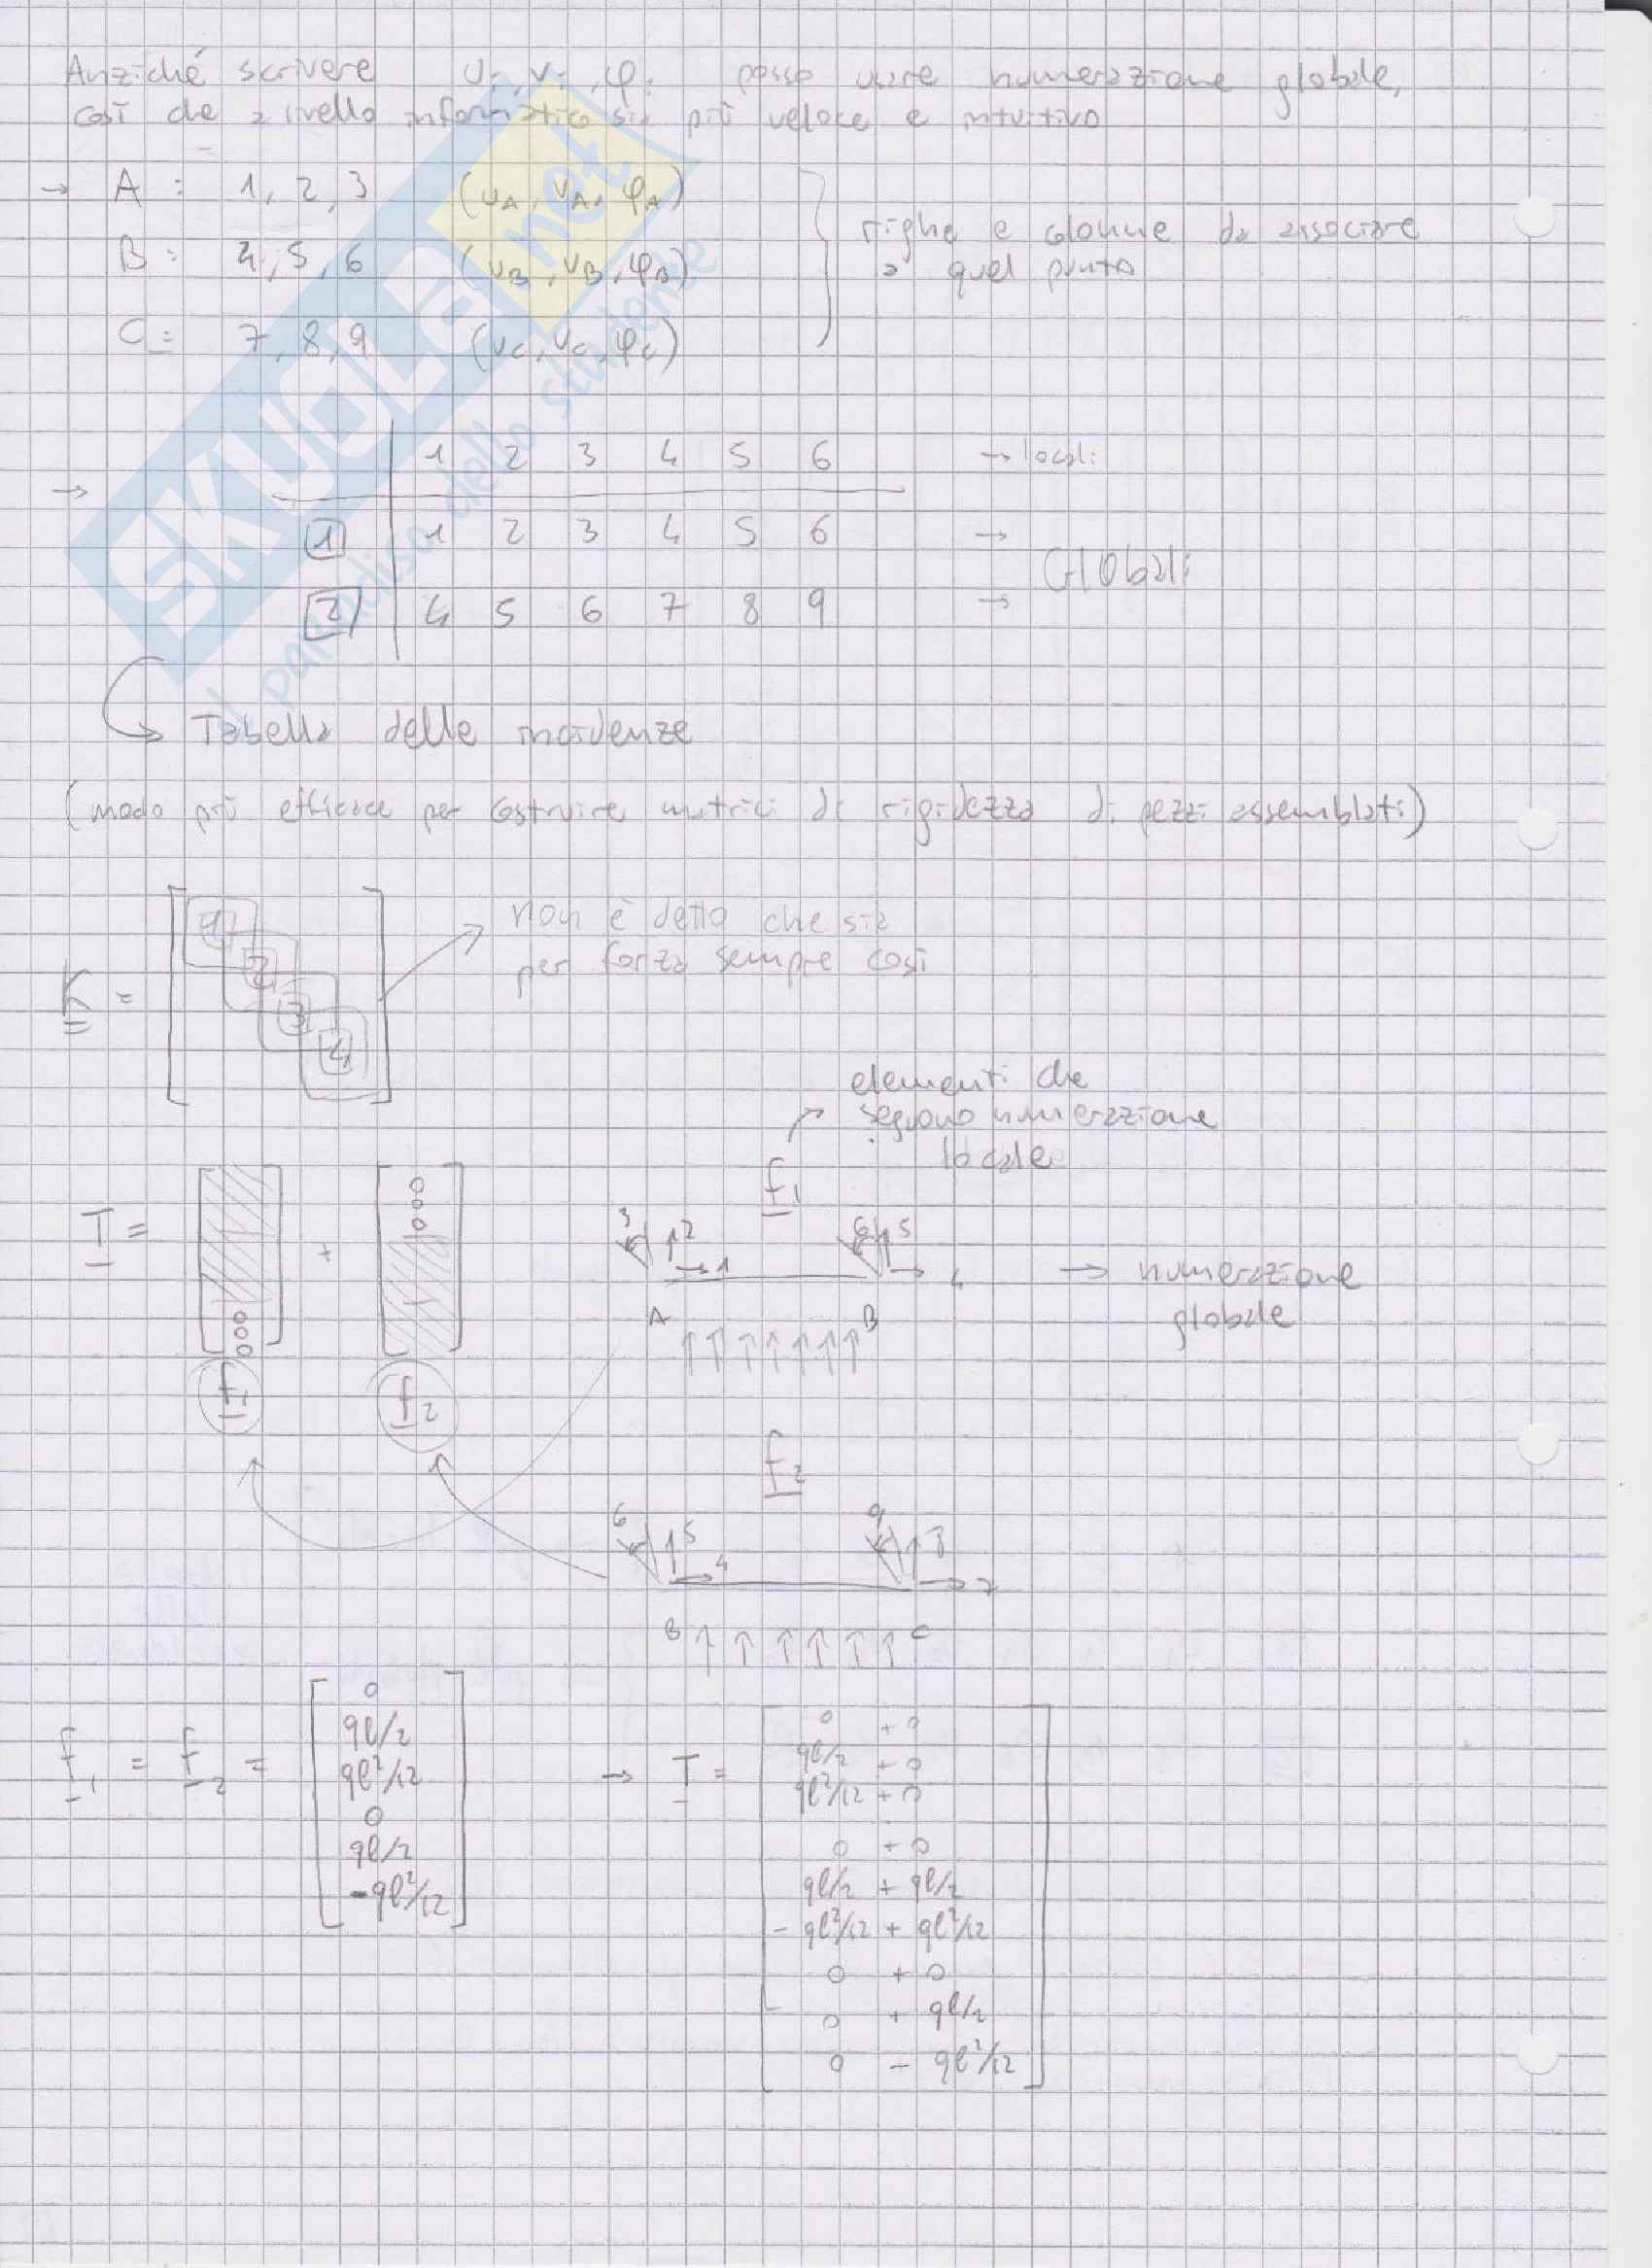 Anziché scrivere Ui, Vi, φi posso usare numerazione globale,
così che a livello informatico sia più veloce e intuitivo
→ A = 1, 2, 3 (uA, vA, φA)
B = 4, 5, 6 (uB, vB, φB)
C = 7, 8, 9 (uC, vC, φC)
righe e colonne da associare
a quel punto
1 2 3 4 5 6 → locali
→
1 1 2 3 4 5 6 →
Globali
2 4 5 6 7 8 9 →
Tabella delle incidenze
(modo più efficace per costruire matrici di rigidezza di pezzi assemblati)
K = [1 2 3 4]
non è detto che sia
per forza sempre così
elementi che
seguono numerazione
locale
f1
T = [ 0 0 0 ] + [ 0 0 0 ]
3 2 1 6 5 4
→ numerazione
globale
A B
f1 f2
f2
6 5 4 9 8 7
B C
f1 = f2 =
0
ql/2
ql²/12
0
ql/2
-ql²/12
→ T =
0 + 0
ql/2 + 0
ql²/12 + 0
0 + 0
ql/2 + ql/2
- ql²/12 + ql²/12
0 + 0
0 + ql/2
0 - ql²/12
SKUOLA.net
il paradiso dello studente